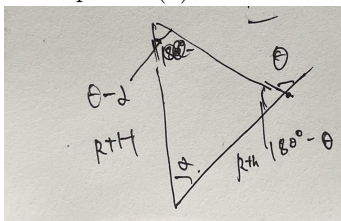 θ
θ-α
R+H
α
R+h
180° - θ